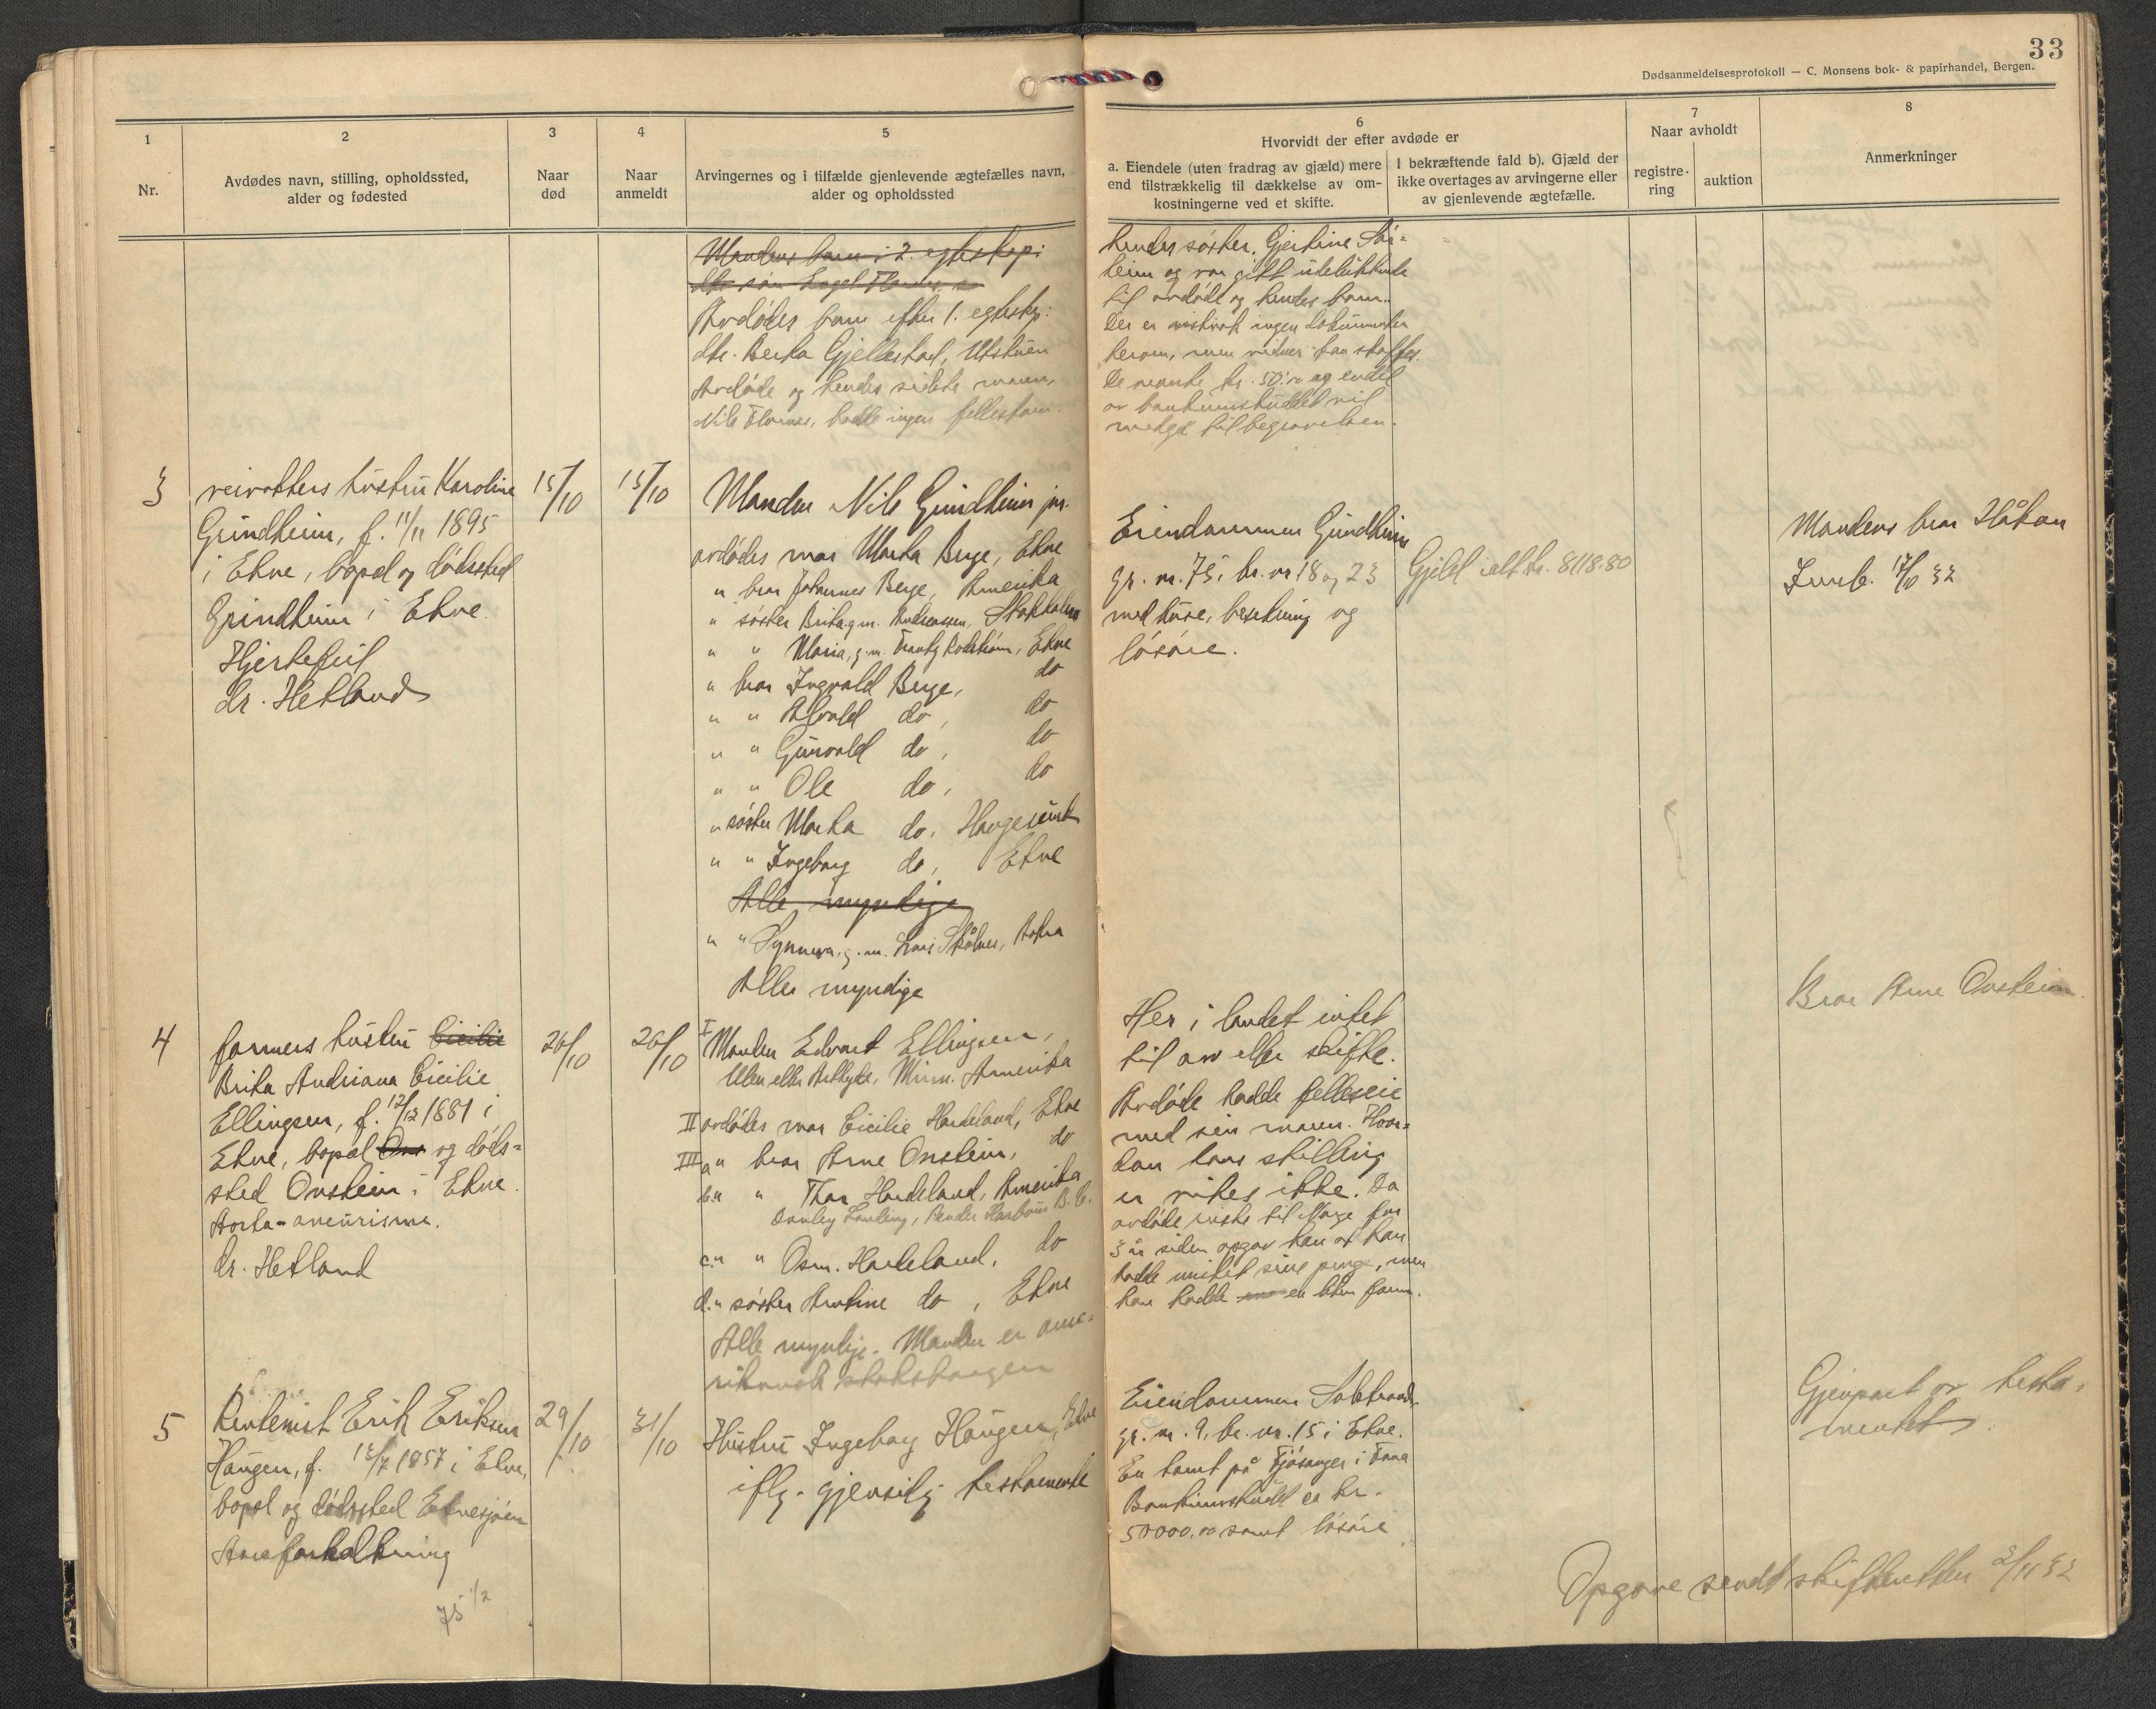 33
Dødsanmeldelsesprotokoll — C. Monsens bok- & papirhandel, Bergen.
1
Nr.
2
Avdødes navn, stilling, opholdssted,
alder og fødested
3
Naar
død
4
Naar
anmeldt
5
Arvingernes og i tilfælde gjenlevende ægtefælles navn,
alder og opholdssted
6
Hvorvidt der efter avdøde er
a. Eiendele (uten fradrag av gjæld) mere
end tilstrækkelig til dækkelse av om-
kostningerne ved et skifte.
I bekræftende fald b). Gjæld der
ikke overtages av arvingerne eller
av gjenlevende ægtefælle.
7
Naar avholdt
registre-
ring
auktion
8
Anmerkninger
Mandens barn i 2. egteskap:
Avdødes barn efter 1. egteskp:
dtr. Berta Gjellestad, Utstuen
Avdøde og hendes sidste mann,
Nils Flornes, hadde ingen fellesbarn.
hendes søster, Gjertine Sør-
heim og var gitt utelukkende
til avdøde og hendes barn.
Der er vistnok ingen dokumenter
herom, men vidner kan skaffes.
De nevnte kr. 50.00 og endel
av bankinnskuddet vil
medgå til begravelsen.
3
veivokters hustru Karoline
Grindheim, f. 11/11 1895
i Etne, bopel og dødssted
Grindheim i Etne
Hjertefeil
dr. Hetland
15/10
15/10
Manden Nils Grindheim jr.
avdødes mor Marta Berge, Etne
" bror Johannes Berge, Amerika
" søster Brita g.m. Andreassen, Stokholm
" " Maria, g.m. Frantz Rodstrøm, Etne
" bror Ingvald Berge, do
" " Alvald do, do
" " Gunvald do, do
" " Ole do, do
" søster Marta do, Haugesund
" " Ingeborg do, Etne
Alle myndige
" " Synneva, g.m. Lars Skålnes, Aakra
Alle myndige
Eiendommen Grindheim
gr. nr. 75, br. nr 18 og 23
med huse, besetning og
løsøre.
Gjeld ialt kr. 8118.80
Mandens bror Håkon
Innb. 17/10 32
4
farmers hustru Cicilie
Brita Andriana Cicilie
Ellingsen, f. 12/12 1881 i
Etne, bopæl Ons og døds-
sted Onstein i Etne.
Aorta-aneurisme.
dr. Hetland
26/10
26/10
I Manden Edvart Ellingsen,
Ulen eller Aethyle, Minn. Amerika
II avdødes mor Cicilie Hardeland, Etne
III a " bror Arne Onstein, do
b. " " Thor Hardeland, Amerika
Landing, Pender Harbour B.C.
c. " " Osm. Hardeland, do
d. " søster Arntine do, Etne
Alle myndige. Manden er ame-
rikansk statsborger
Her i landet intet
til arv eller skifte.
Avdøde hadde felleseie
med sin mann. Hvor-
dan hans stilling
er vites ikke. Da
avdøde reiste til Norge for
3 år siden opgav han at han
hadde mistet sine penge, men
han hadde en liten farm.
Bror Arne Onstein.
5
Rentenist Erik Eriksen
Haugen, f. 13/7 1857 i Etne,
bopel og dødssted Etnesjøen
Aareforkalkning
75 1/2
29/10
31/10
Hustru Ingeborg Haugen, Etne
iflg. gjensidig testamente
Eiendommen Solstrand,
gr. nr. 9, br. nr. 15 i Etne.
En tomt på Fjøsanger i Fana
Bankinnskudd ca kr.
50000.00 samt løsøre
Gjenpart av testa-
mentet.
Opgave sendt skifteretten 2/11 32